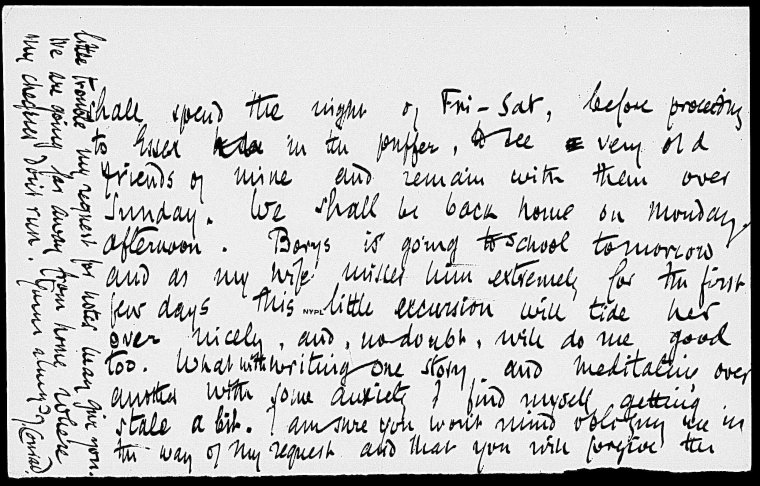 shall spend the night of Fri-Sat, before proceeding
to Essex in the puffer, to see very old
friends of mine and remain with them over
Sunday. We shall be back home on Monday
afternoon. Borys is going to school tomorrow
and as my wife misses him extremely for the first
few days this little excursion will tide her
NYPL
over nicely, and, no doubt, will do me good
too. What with writing one story and meditating over
another with some anxiety I find myself getting
stale a bit. I am sure you won't mind obliging me in
the way of my request and that you will forgive the
little trouble my request for notes may give you.
We are going far away from home where
my cheques don't run. Yours always J. Conrad.